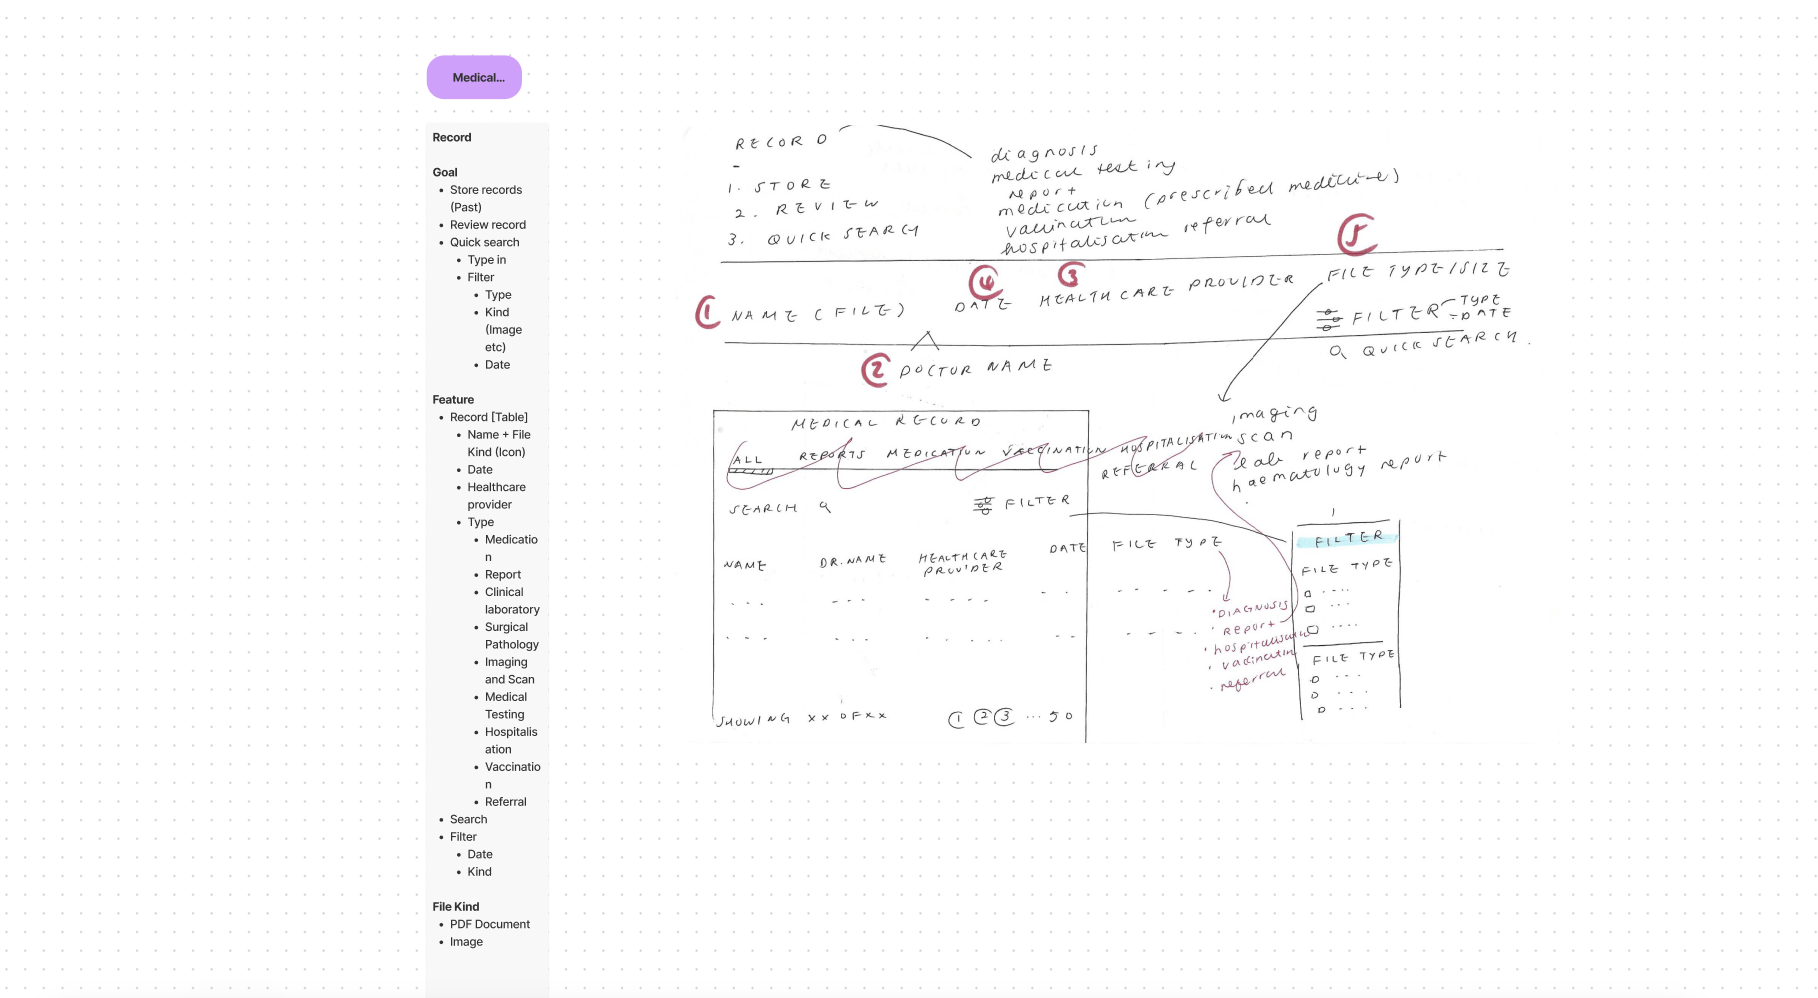 Medical...
Record
Goal
Store records
(Past)
Review record
Quick search
Type in
Filter
Type
Kind
(Image
etc)
Date
Feature
Record [Table]
Name + File
Kind (Icon)
Date
Healthcare
provider
Type
Medicatio
n
Report
Clinical
laboratory
Surgical
Pathology
Imaging
and Scan
Medical
Testing
Hospitalis
ation
Vaccinatio
n
Referral
Search
Filter
Date
Kind
File Kind
PDF Document
Image
RECORD
-
1. STORE
2. REVIEW
3. QUICK SEARCH
diagnosis
medical testing
report
medication (prescribed medicine)
vaccination
hospitalisation referral
1 NAME (FILE)
4 DATE
3 HEALTHCARE PROVIDER
5 FILE TYPE/SIZE
FILTER - TYPE
- DATE
QUICK SEARCH.
2 DOCTOR NAME
imaging
scan
lab report
haematology report
MEDICAL RECORD
ALL REPORTS MEDICATION VACCINATION HOSPITALISATION
REFERRAL
SEARCH FILTER
NAME DR.NAME HEALTHCARE PROVIDER DATE FILE TYPE
DIAGNOSIS
REPORT
hospitalisation
vaccination
referral
SHOWING XX OF XX 1 2 3 ... 50
FILTER
FILE TYPE
FILE TYPE